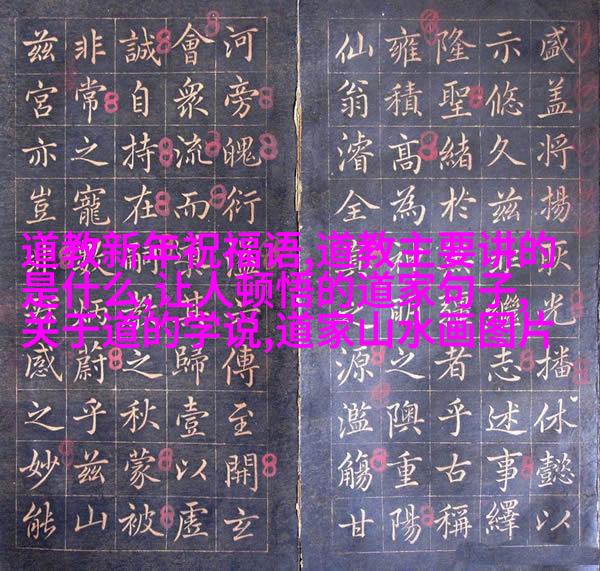 盛蓋將揚光播休懿以
示悠久茲繼志述事繹
隆聖緒於者乎古稱
雍積高為明之隩重陽
仙翁濬全源濫觴甘
河旁魄衍傳至開玄
會衆流而其歸壹以虛
誠自持在之秋蒙被
非常之寵蔚乎茲山
茲宮亦豈感之妙能
道教新年祝福语,道教主要讲的
是什么,让人顿悟的道家句子,
关于道的学说,道家山水画图片